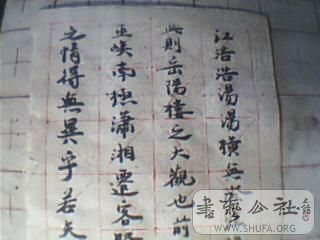 江浩浩湯湯横無
此則岳陽樓之大觀也前
巫峽南極瀟湘遷客騷
之情得無異乎若夫
書藝公社
WWW.SHUFA.ORG